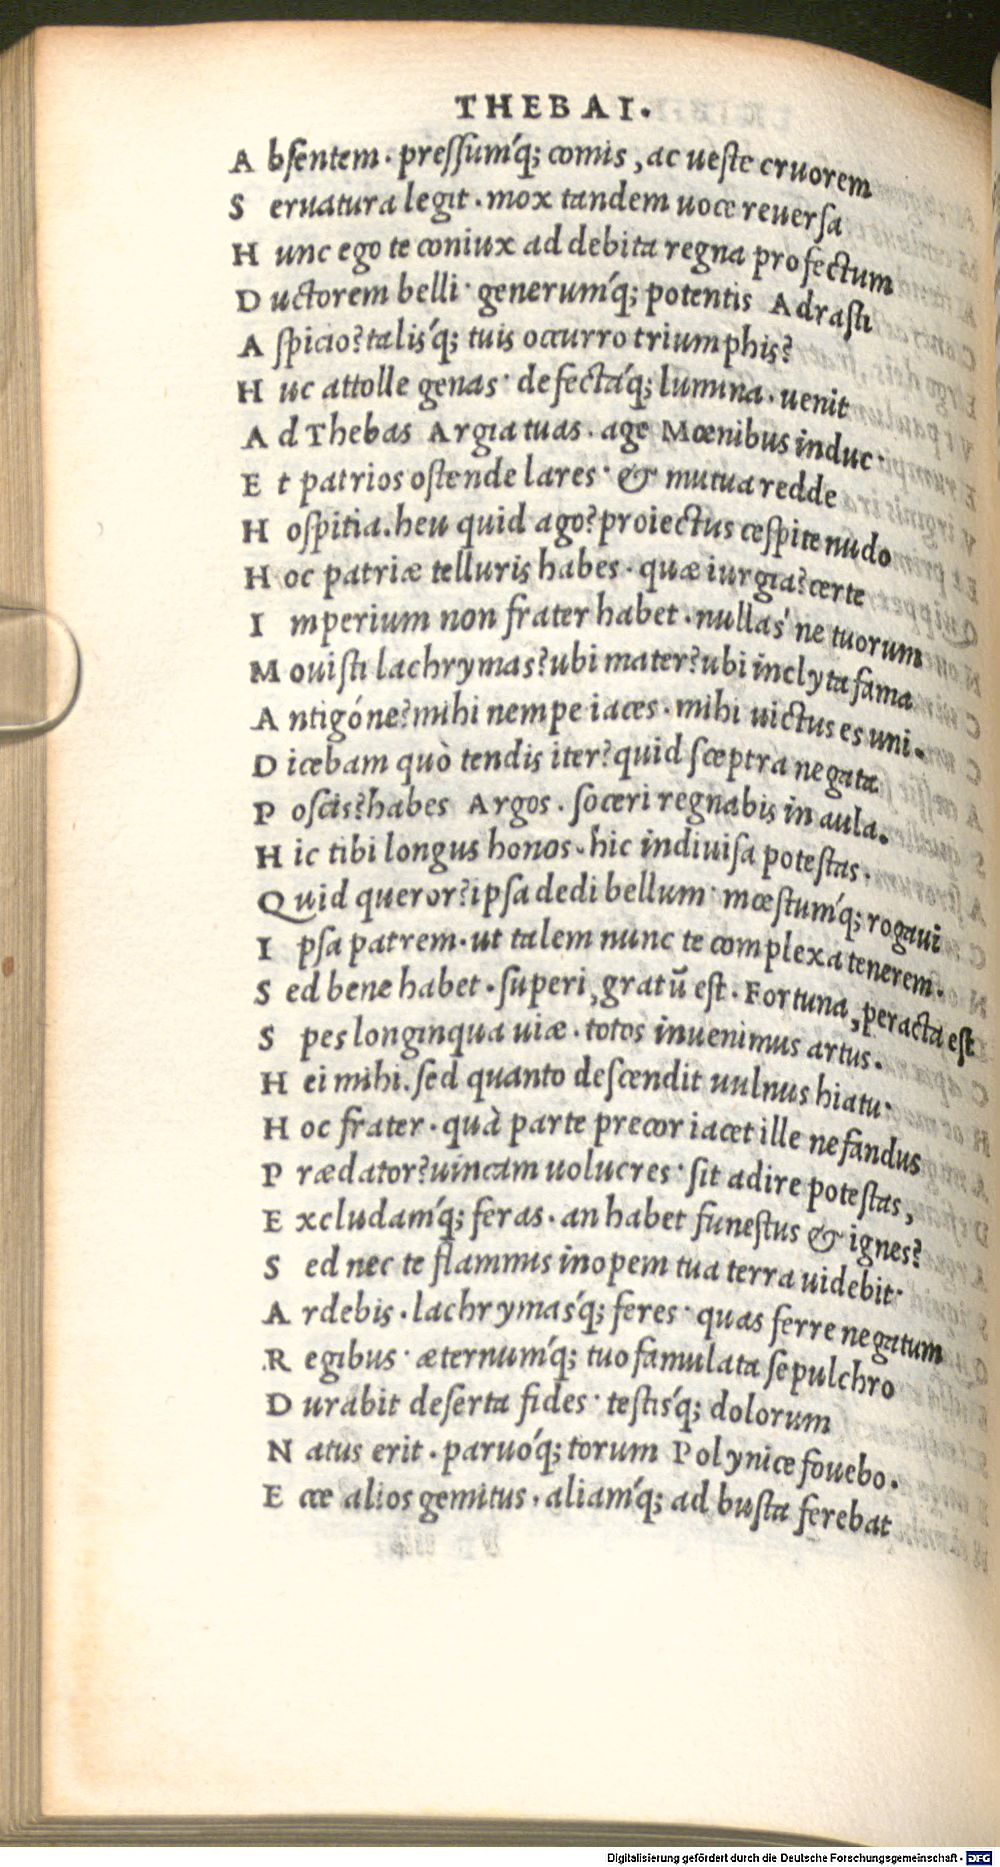 THEBAI.
A bſentem. preſſumq́; comis, ac ueſte cruorem
S eruatura legit. mox tandem uoce reuerſa
H unc ego te coniux ad debita regna profectum
D uctorem belli· generumq́; potentis Adraſti
A ſpicio? talisq́; tuis occurro triumphis?
H uc attolle genas· defectaq́; lumina. uenit
A d Thebas Argia tuas. age Mœnibus induc·
E t patrios oſtende lares· & mutua redde
H oſpitia. heu quid ago? proiectus ceſpite nudo
H oc patriæ telluris habes. quæ iurgia? certe
I mperium non frater habet. nullas' ne tuorum
M ouiſti lachrymas? ubi mater? ubi inclyta fama
A ntigóne? mihi nempe iaces. mihi uictus es uni.
D icebam quò tendis iter? quid ſceptra negata
P oſcis? habes Argos. ſoceri regnabis in aula.
H ic tibi longus honos. hic indiuiſa poteſtas.
Q uid queror? ipſa dedi bellum· mœſtumq́; rogaui
I pſa patrem. ut talem nunc te complexa tenerem.
S ed bene habet. ſuperi, gratũ eſt. Fortuna, peracta eſt
S pes longinqua uiæ. totos inuenimus artus.
H ei mihi. ſed quanto deſcendit uulnus hiatu·
H oc frater. quà parte precor iacet ille nefandus
P rædator? uincam uolucres· ſit adire poteſtas,
E xcludamq́; feras. an habet funeſtus & ignes?
S ed nec te flammis inopem tua terra uidebit·
A rdebis. lachrymasq́; feres· quas ferre negatum
R egibus· æternumq́; tuo famulata ſepulchro
D urabit deſerta fides· teſtisq́; dolorum
N atus erit. paruoq́; torum Polynice fouebo.
E cce alios gemitus. aliamq́; ad buſta ferebat
Digitalisierung gefördert durch die Deutsche Forschungsgemeinschaft - DFG